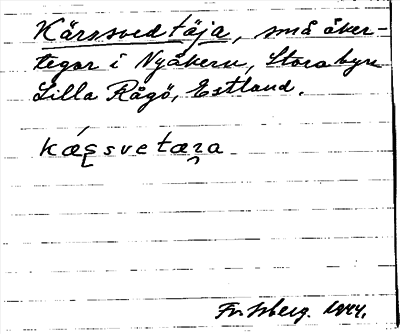 Kärssvedtäja, små åker-
tegar i Nyåkern, Storabyn
Lilla Rågö, Estland.
kǽ̨ssvetæʒa
1944.